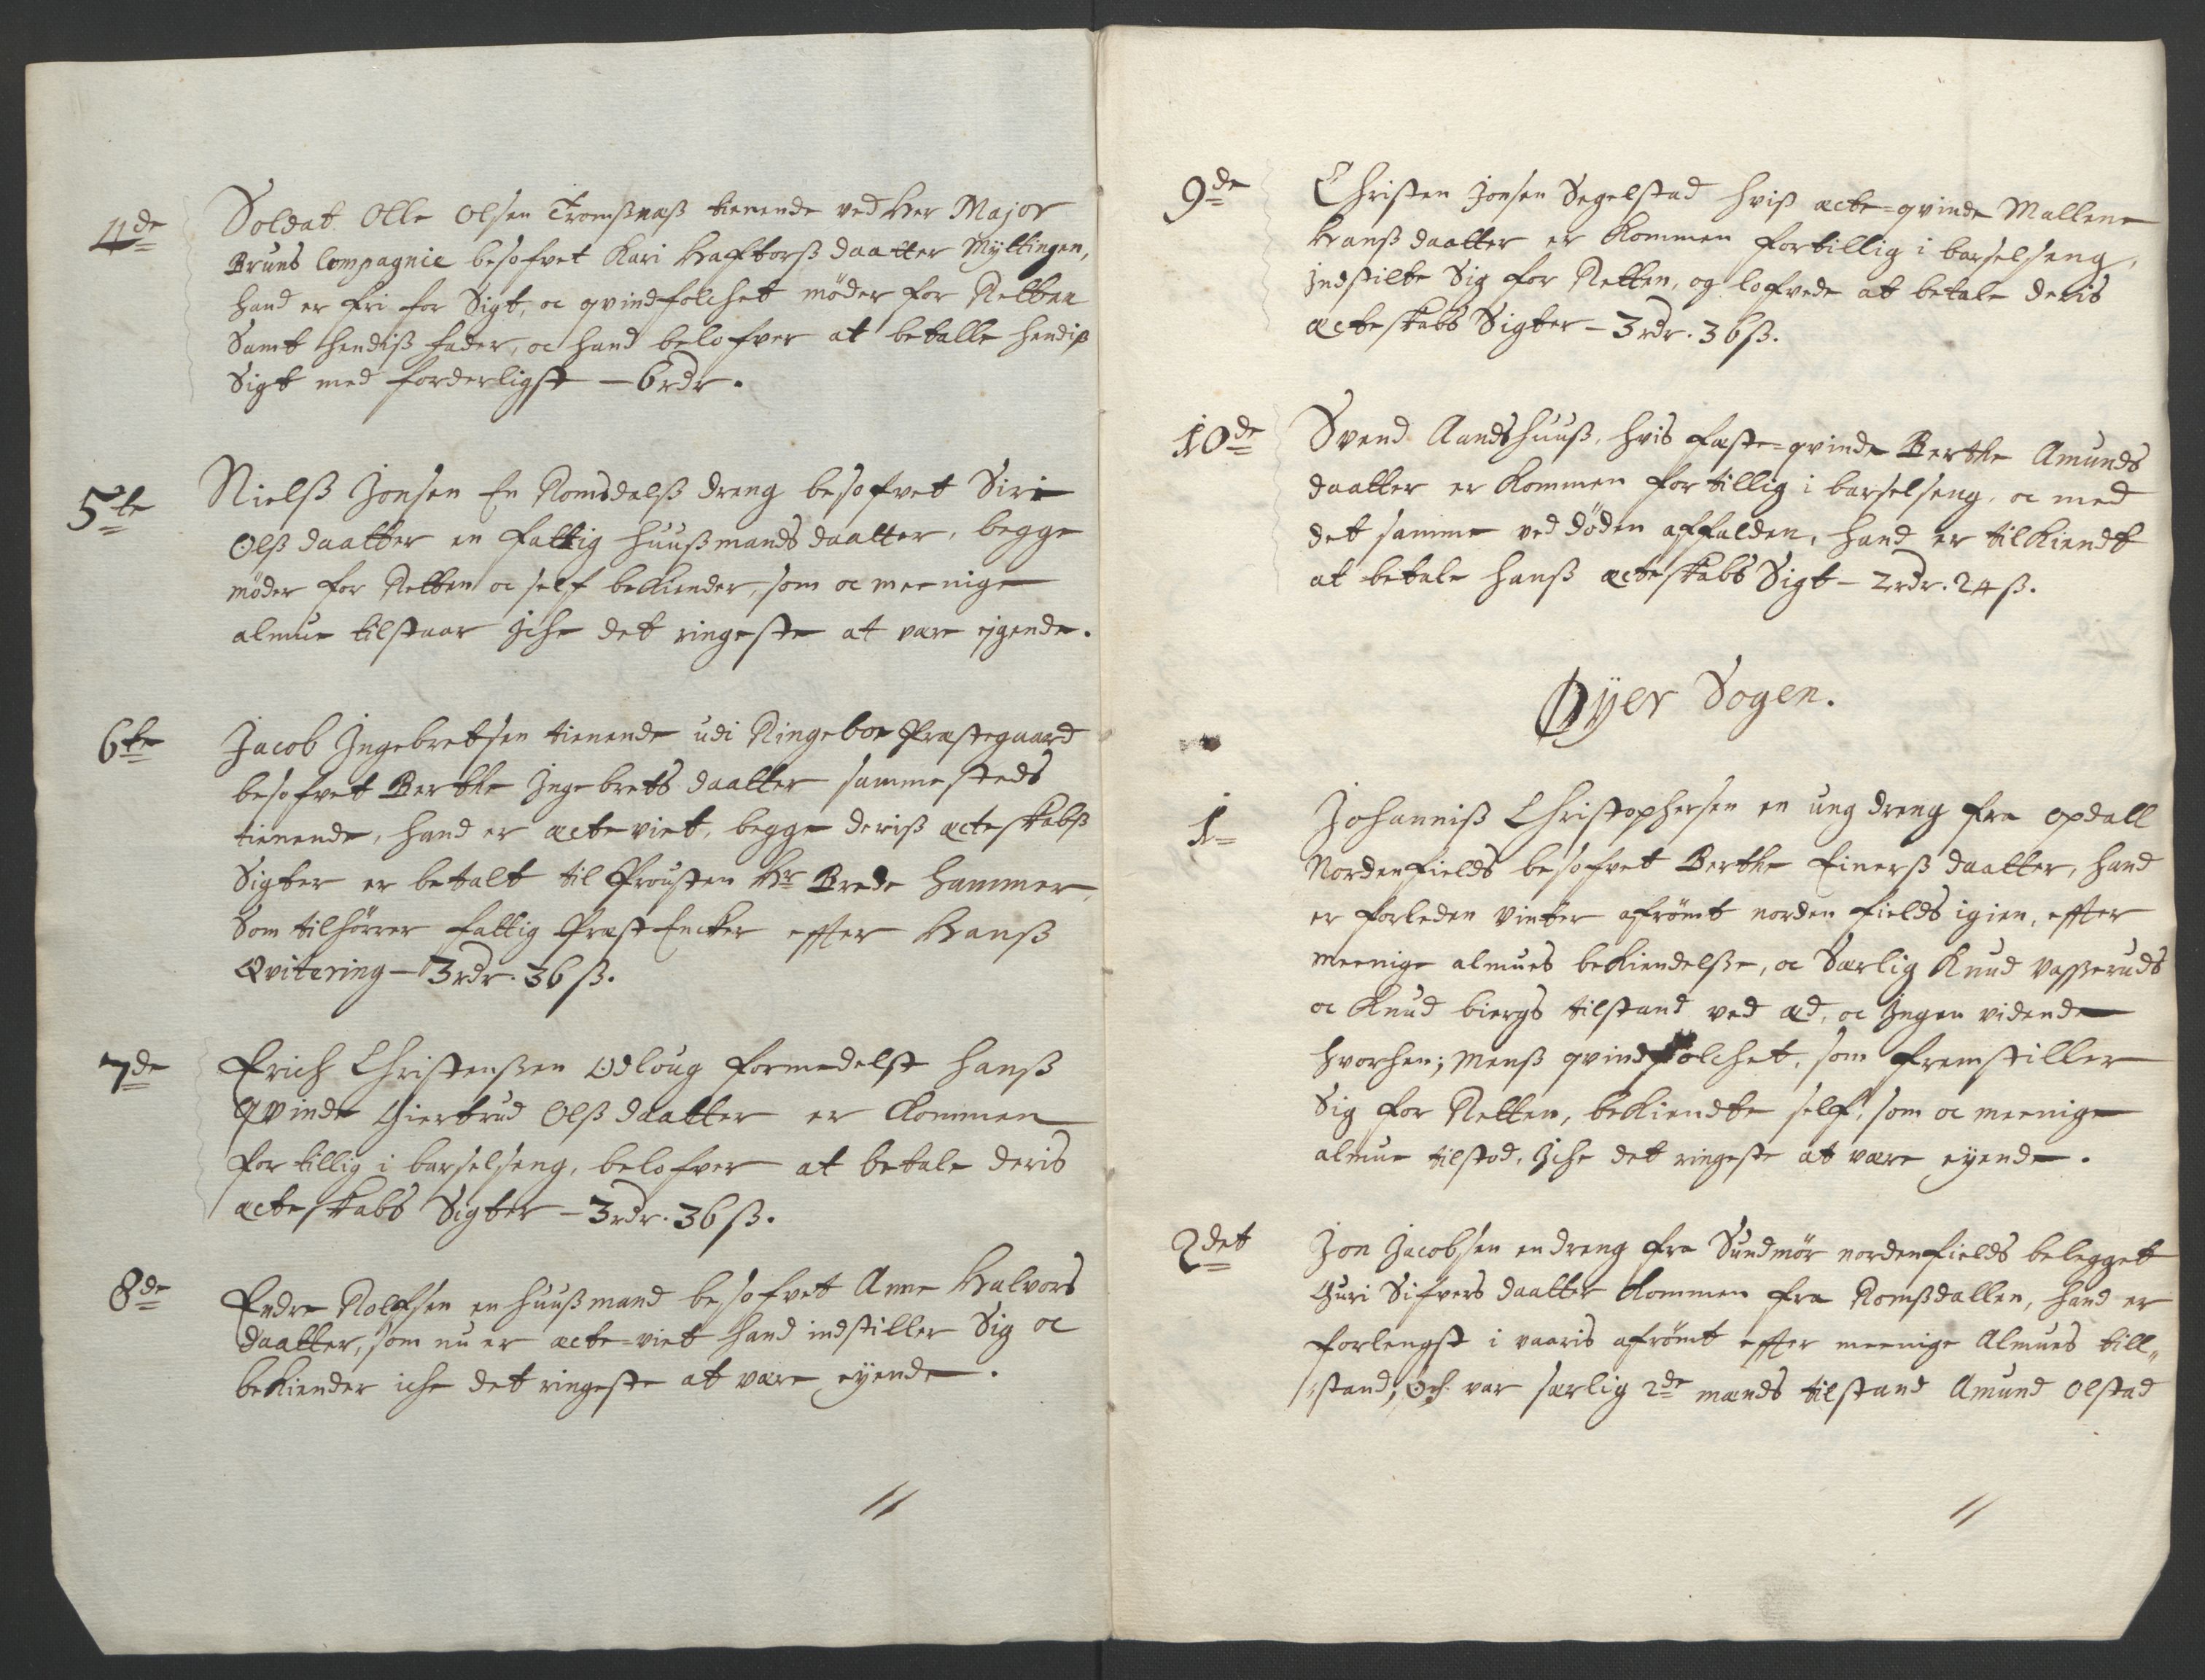 4de
Soldat Olle Olsen Tromßnaß tienende ved Her Major
Bruns Compagnie besofvet Kari Hafftorß daatter Myttingen,
hand er fri for Sigt, oc qvindfolchet møder for Retten
Samt hendiß fader, oc hand belofver at betalle hendiß
Sigt med forderligst – 6 rdr.
5te
Nielß Jonsen En Romsdalß dreng besofvet Siri
Olß daatter en fattig huußmands daatter, begge
møder for Retten oc self bekiender, som oc meenige
almue tilstaar Iche det ringeste at være ejgende.
6te
Jacob Ingebretsen tienende udi Ringeboe Præstegaard
besofvet Berthe Ingebrets daatter sammesteds
tienende, hand er ecte viet, begge deriß ecteskabß
Sigter er betalt til Prousten Hr Brede Hammer,
Som tilhørrer fattig Præst Encker effter Hanß
Qvitering – 3 rdr. 36 ß.
7de
Erich Christenßen Odloug formedelst hanß
Qvinde Giertrud Olß daatter er kommen
for tillig i barselseng, belofver at betale deris
ecteskabs Sigter – 3 rdr. 36 ß.
8de
Endre Rolfsen en huußmand besofvet Anne Halvors
daatter, som nu er ecte=viet hand indstiller Sig oc
bekiender iche det ringeste at være eyende.
9de
Christen Jonsen Segelstad hviß ecte=qvinde Mallene
Hanß daatter er kommen fortillig i barselseng,
Indstilte Sig for Retten, og lofvede at betale deris
ecteskabs Sigter – 3 rdr. 36 ß.
10de
Svend Aandshuuß, hvis fæste=qvinde Berthe Amunds
daatter er kommen for tillig i barselseng, oc med
det samme ved døden affalden, hand er tilkiendt
at betale hanß ecteskabs Sigt – 2 rdr. 24 ß.
Øyer Sogen.
1
Johanniß Christophersen en ung dreng fra Opdall
Nordenfields besofvet Berthe Einerß daatter, hand
er forleden vinter afrømt norden fields igien, effter
meenige almues bekiendelße, oc Særlig Knud Vasseruds
oc Knud biergs tilstand ved æd, oc Ingen vidende
hvorhen; menß qvindfolchet, som fremstiller
Sig for Retten, bekiendte self, som oc meenige
almue tilstod, Iche det ringeste at være eyende.
2det
Jon Jacobsen en dreng fra Sundmør nordenfields belegget
Guri Sifvers daatter kommen fra Romßdallen, hand er
forlengst i vaaris afrømt effter meenige Almues till„
stand, Och var særlig 2de mænds tilstand Amund Olstad